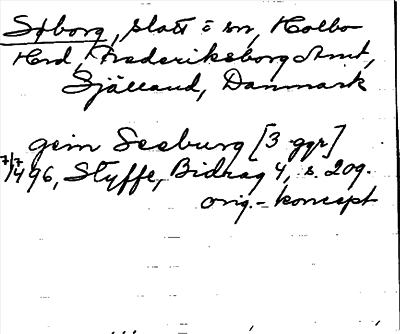 Søborg, slott o sn, Holbo
Hrd, Frederiksborg Amt,
Själland, Danmark
gein Seeburg [3 ggr]
7/7 1496, Styffe, Bidrag 4, s. 209.
orig.-koncept